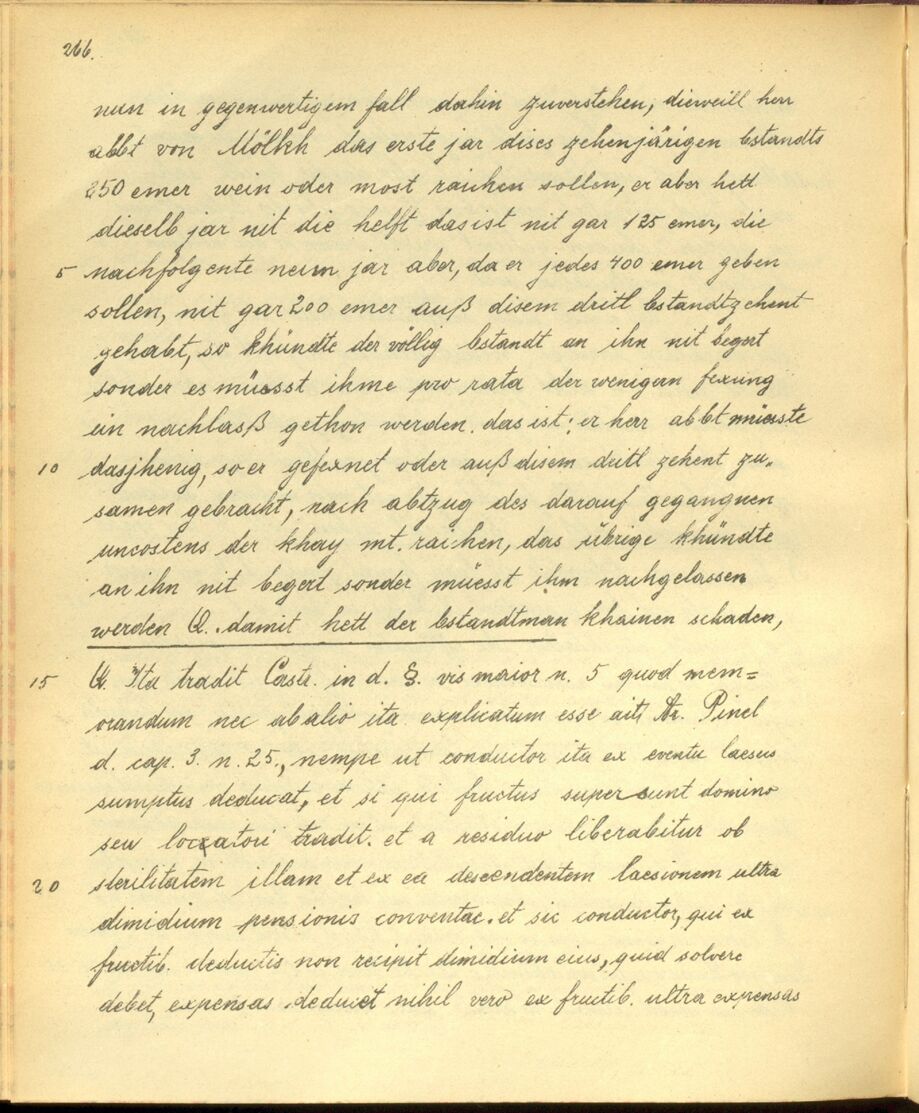 266.
nun in gegenwertigem fall dahin zuverstehen, dieweill herr
abbt von Mölkh das erste jar dises zehenjärigen bstandts
250 emer wein oder most raichen sollen, er aber hett
dieselb jar nit die helft das ist nit gar 125 emer, die
5 nachfolgente neun jar aber, da er jedes 400 emer geben
sollen, nit gar 200 emer auß disem dritl bstandtzehent
gehabt, so khündte der völlig bstandt an ihn nit begert
sonder es müesst ihme pro rata der wenigern fexung
ein nachlasß gethon werden. das ist: er herr abbt müesste
10 dasjhenig, so er gefexnet oder auß disem dritl zehent zu„
samen gebracht, nach abtzug des darauf gegangnen
uncostens der khay mt. raichen, das übrige khündte
an ihn nit begert sonder müesst ihm nachgelassen
werden Q. damit hett der bstandtman khainen schaden,
15 Q. Ita tradit Castr. in d. §. vis maior n. 5 quod mem=
orandum nec ab alio ita explicatum esse ait Ar. Pinel
d. cap. 3. n. 25., nempe ut conductor ita ex eventu laesus
sumptus deducat, et si qui fructus supersunt domino
seu locatori tradit. et a residuo liberabitur ob
20 sterilitatem illam et ex ea descendentem laesionem ultra
dimidium pensionis conventae. et sic conductor, qui ex
fructib. deductis non recipit dimidium eius, quid solvere
debet, expensas deducet nihil vero ex fructib. ultra expensas